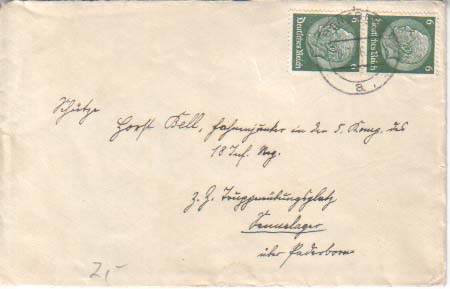 6 6
Deutsches Reich Deutsches Reich
6 6
a
Schütze
Horst Kell, Fahnenjunker in der 5. Komp. des
18 Inf. Reg.
z. Z. Truppenübungsplatz
Sennelager
über Paderborn
2,-